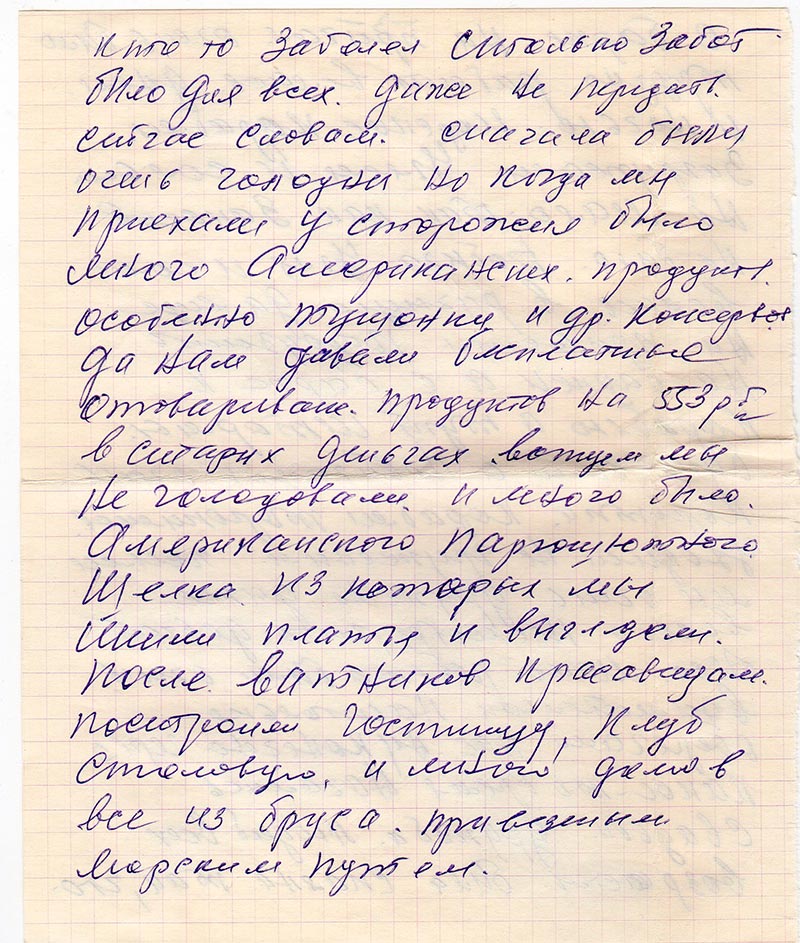 кто то Заболел ситолько Забот
было для всех. даже не передать.
ситчас словам. сначала были
очень голодны но когда мы
приехали у сторожем было
много Американских. продуктов.
особенно тушонки и др. консерв
да нам давали бесплатные
отоваривал. продуктов на 553 рб
в ситарых деньгах. вотщем мы
не голодовали. и много было.
Американского парошютного
Шелка. из которых мы
Шили платья и выгледели.
После. ватников красавицам.
построили гостиницу, клуб
столовую, и много домов
все из бруса. привезеным
морским путем.